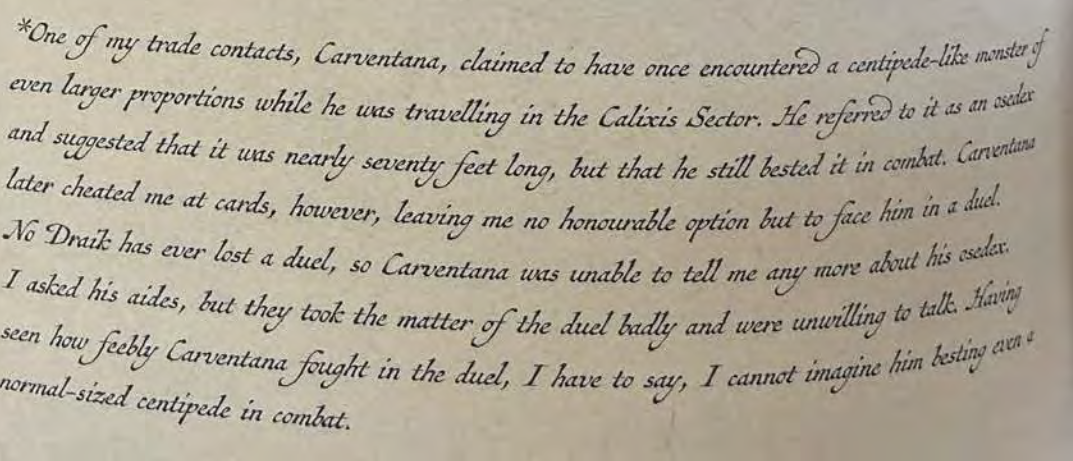 *One of my trade contacts, Carventana, claimed to have once encountered a centipede-like monster of
even larger proportions while he was travelling in the Calixis Sector. He referred to it as an osedex
and suggested that it was nearly seventy feet long, but that he still bested it in combat. Carventana
later cheated me at cards, however, leaving me no honourable option but to face him in a duel.
No Draik has ever lost a duel, so Carventana was unable to tell me any more about his osedex.
I asked his aides, but they took the matter of the duel badly and were unwilling to talk. Having
seen how feebly Carventana fought in the duel, I have to say, I cannot imagine him besting even a
normal-sized centipede in combat.